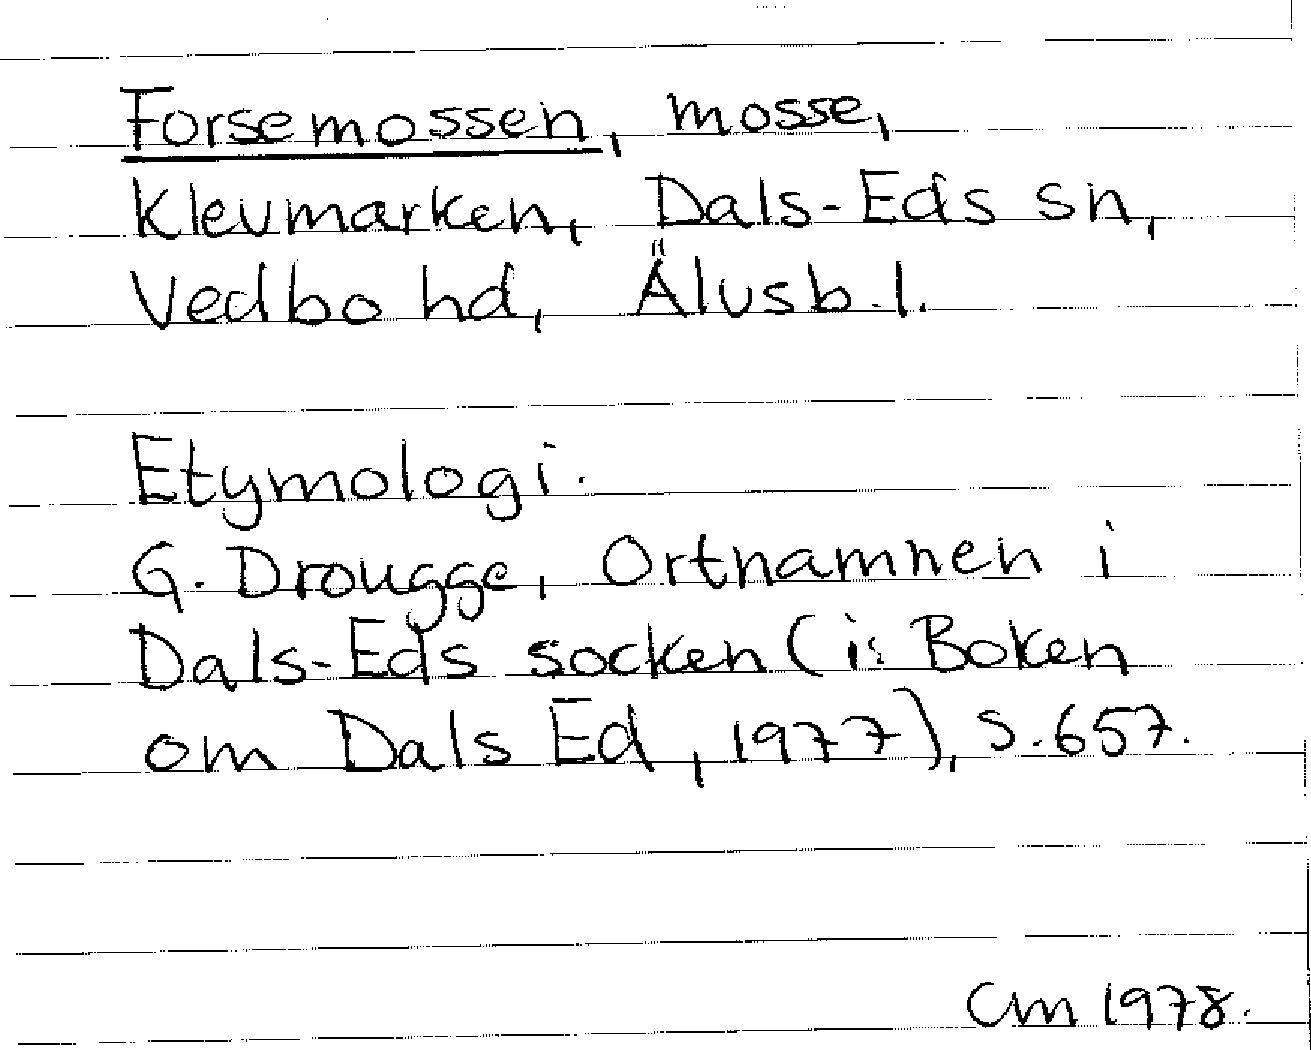 Forsemossen, mosse,
Klevmarken, Dals-Eds sn,
Vedbo hd, Älvsb.l.
Etymologi.
G. Drougge, Ortnamnen i
Dals-Eds socken (i: Boken
om Dals Ed, 1977), s. 657.
CM 1978.